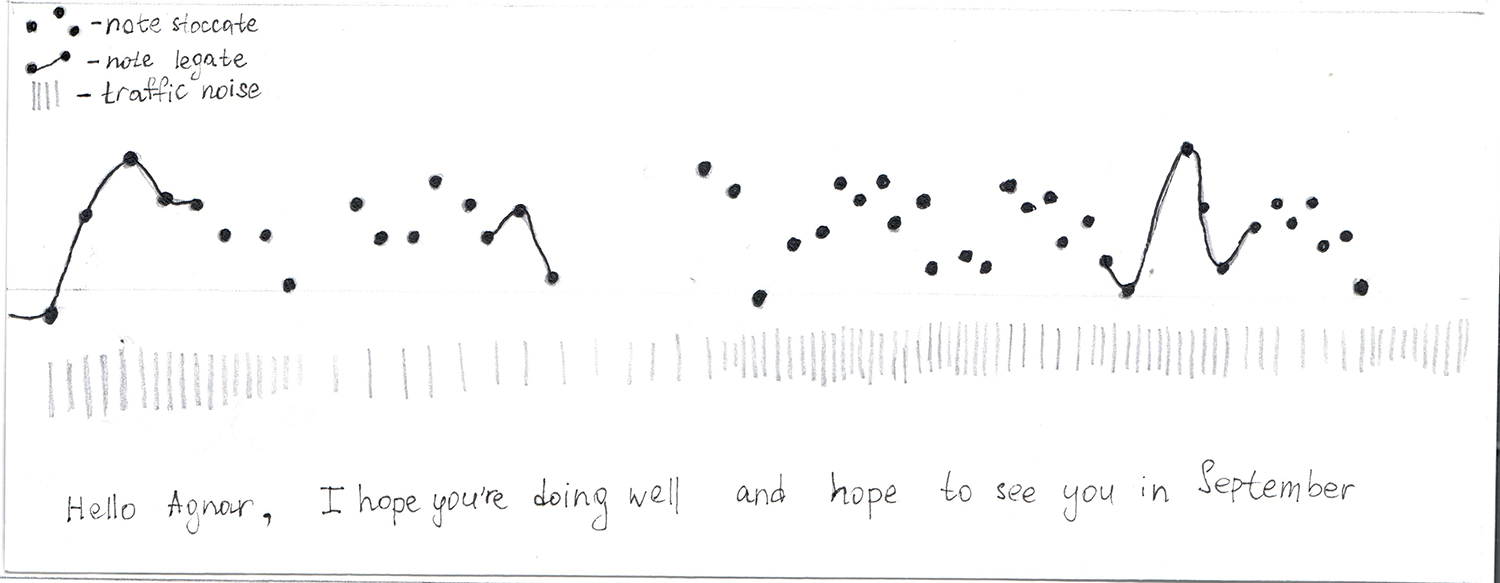 - note stoccate
- note legate
- traffic noise
Hello Agnar, I hope you're doing well and hope to see you in September